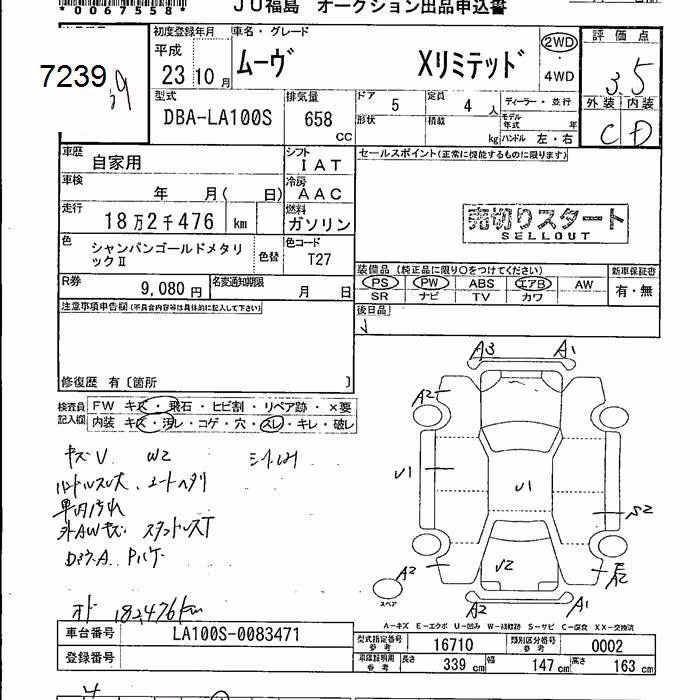 *0067558*
JU福島 オークション出品申込書
7239
初度登録年月
平成
23 10月
車名・グレード
ムーヴ Xリミテッド
2WD
・
4WD
評価点
3.5
外装 内装
C D
型式
DBA-LA100S
排気量
658 CC
ドア 5
定員 4 人
形状
積載 kg
ディーラー・並行
モデル年式 年
ハンドル 左・右
車歴
自家用
シフト
IAT
車検
年 月( 日)
冷房
AAC
走行
18万2千476 km
燃料
ガソリン
色
シャンパンゴールドメタリックⅡ
色替
色コード
T27
R券
9,080円
名変通知期限
月 日
セールスポイント(正常に機能するものに限ります)
売切りスタート
SELLOUT
装備品 (純正品に限り○をつけてください)
PS PW ABS エアB AW
SR ナビ TV カワ
新車保証書
有・無
後日品
注意事項申告欄(不具合内容等は具体的に記入して下さい)
修復歴 有〔箇所 〕
検査員記入欄
FW キズ・飛石・ヒビ割・リペア跡・×要
内装 キズ・汚レ・コゲ・穴・スレ・キレ・破レ
キズV W2
車内汚れ
外AWキズ スタッドレスT
オド 182,476km
A3 A1
A2
U1
U1
S2
V2
A2
A2
A2 A1
スペア
A-キズ E-エクボ U-凹み W-補修跡 S-サビ C-腐食 XX-交換済
車台番号 LA100S-0083471
登録番号
型式指定番号 参考 16710
類別区分番号 参考 0002
車庫証明用 参考 長さ 339 cm 幅 147 cm 高さ 163 cm